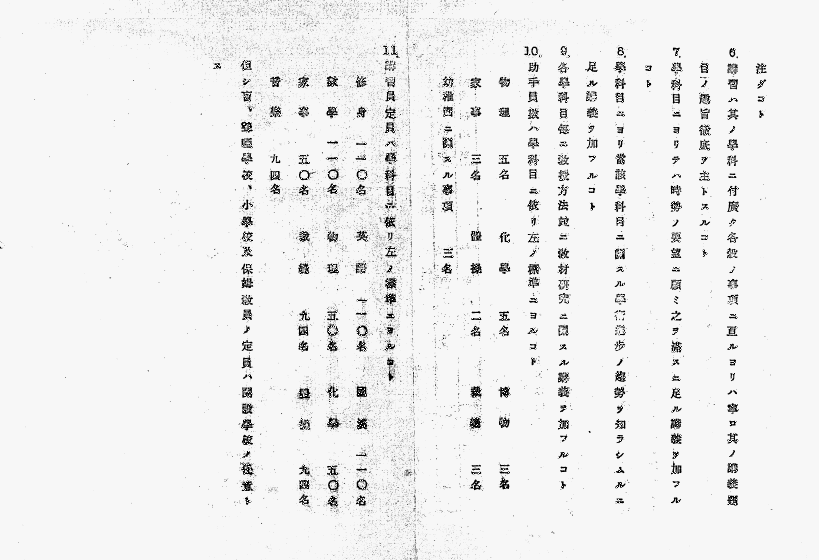 注グコト
6. 講習ハ其ノ學科ニ付廣ク各般ノ事項ニ亘ルヨリハ寧ロ其ノ講義題
目ノ趣旨徹底ヲ主トスルコト
7. 學科目ニヨリテハ時勢ノ要望ニ顧ミ之ヲ滿スニ足ル講義ヲ加フル
コト
8. 學科目ニヨリ當該學科目ニ關スル學術進歩ノ趨勢ヲ知ラシムルニ
足ル講義ヲ加フルコト
9. 各學科目每ニ敎授方法竝ニ敎材硏究ニ關スル講義ヲ加フルコト
10. 助手員數ハ學科目ニ依リ左ノ標準ニヨルコト
物理 五名 化學 五名 博物 三名
家事 三名 體操 二名 裁縫 三名
幼稚園ニ關スル事項 三名
11. 講習員定員ハ學科目ニ依リ左ノ標準ニヨルコト
修身 一一〇名 英語 一一〇名 國漢 一一〇名
數學 一一〇名 物理 五〇名 化學 五〇名
家事 五〇名 裁縫 九四名 體操 九四名
音樂 九四名
但シ盲、聾啞學校、小學校及保姆敎員ノ定員ハ開設學校ノ任意ト
ス